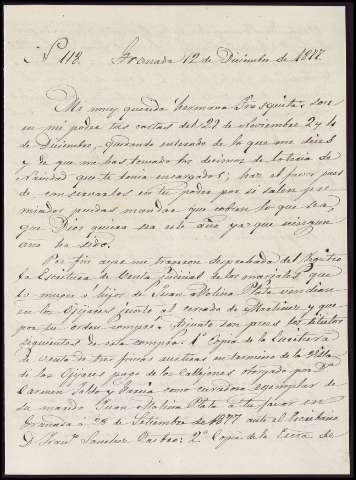 Nº 118. Granada 12 de Diciembre de 1877.
Mi muy querida hermana Frasquita: son
en mi poder tus cartas del 29 de Noviembre 2 y 10
de Diciembre, quedando enterado de lo que me dices
y de que me has tomado los decimos de loteria de
Navidad que te tenia encargados; haz el favor pues
de conservarlos en tu poder por si salen pre-
miados puedas mandar que cobren lo que sea
que Dios quiera sea este año ya que ningun
año ha sido.
Por fin ayer me trajeron despachada del Registro
la Escritura de Venta judicial de los marjales que
la mujer é hijos de Juan Molina Plata vendian
en los Ogijares junto al cercado de Martinez y que
por tu orden compré. Adjunto son pues los titulos
siguientes de esta compra: 1ª Copia de la Escritura
de Venta de tres fincas rusticas en termino de la Villa
de los Ogijares pago de los Callejones otorgada por Dª
Carmen Saldo y Garcia como curadora ejemplar de
su marido Juan Molina Plata a tu favor en
Granada á 28 de Setiembre de 1877 ante el Escribano
D. Franº Sanchez 2ª Copia de la Escra de